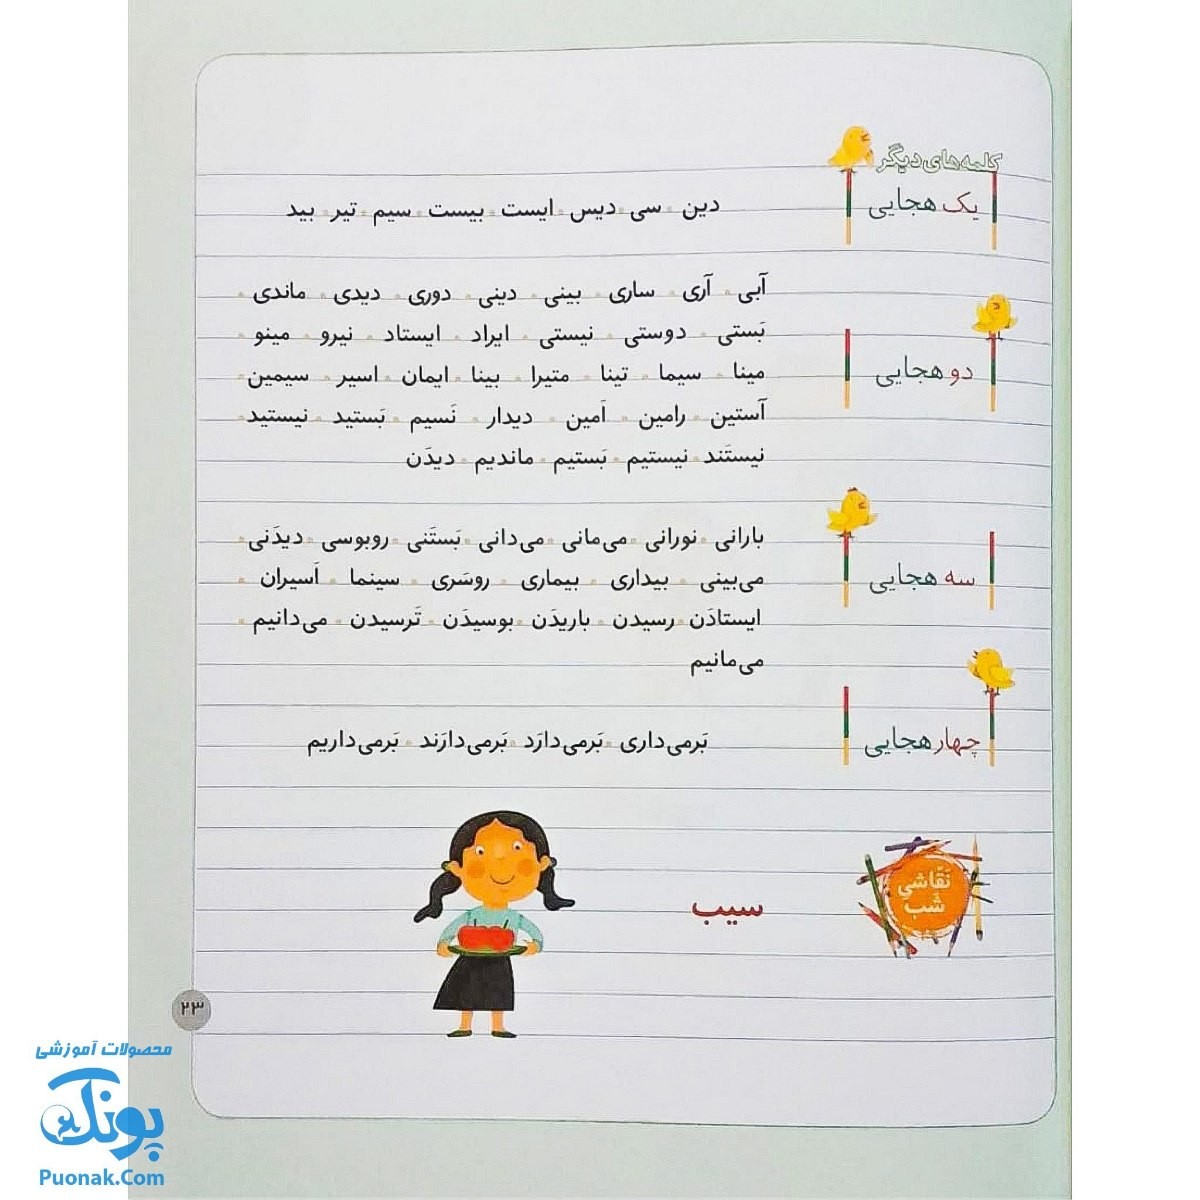 کلمه‌های دیگر
یک هجایی
دین • سی • دیس • ایست • بیست • سیم • تیر • بید
دو هجایی
آبی • آری • ساری • بینی • دینی • دوری • دیدی • ماندی •
بَستی • دوستی • نیستی • ایراد • ایستاد • نیرو • مینو •
مینا • سیما • تینا • متیرا • بینا • ایمان • اسیر • سیمین •
آستین • رامین • اَمین • دیدار • نَسیم • بَستید • نیستید •
نیستَند • نیستیم • بَستیم • ماندیم • دیدَن
سه هجایی
بارانی • نورانی • می‌مانی • می‌دانی • بَستَنی • روبوسی • دیدَنی •
می‌بینی • بیداری • بیماری • روسَری • سینما • اَسیران •
ایستادَن • رسیدن • باریدَن • بوسیدَن • تَرسیدن • می‌دانیم •
می‌مانیم
چهار هجایی
بَرمی‌داری • بَرمی‌دارَد • بَرمی‌دارَند • بَرمی‌داریم
نَقّاشی
شَب
سیب
۲۳
محصولات آموزشی
پونک
Puonak.Com